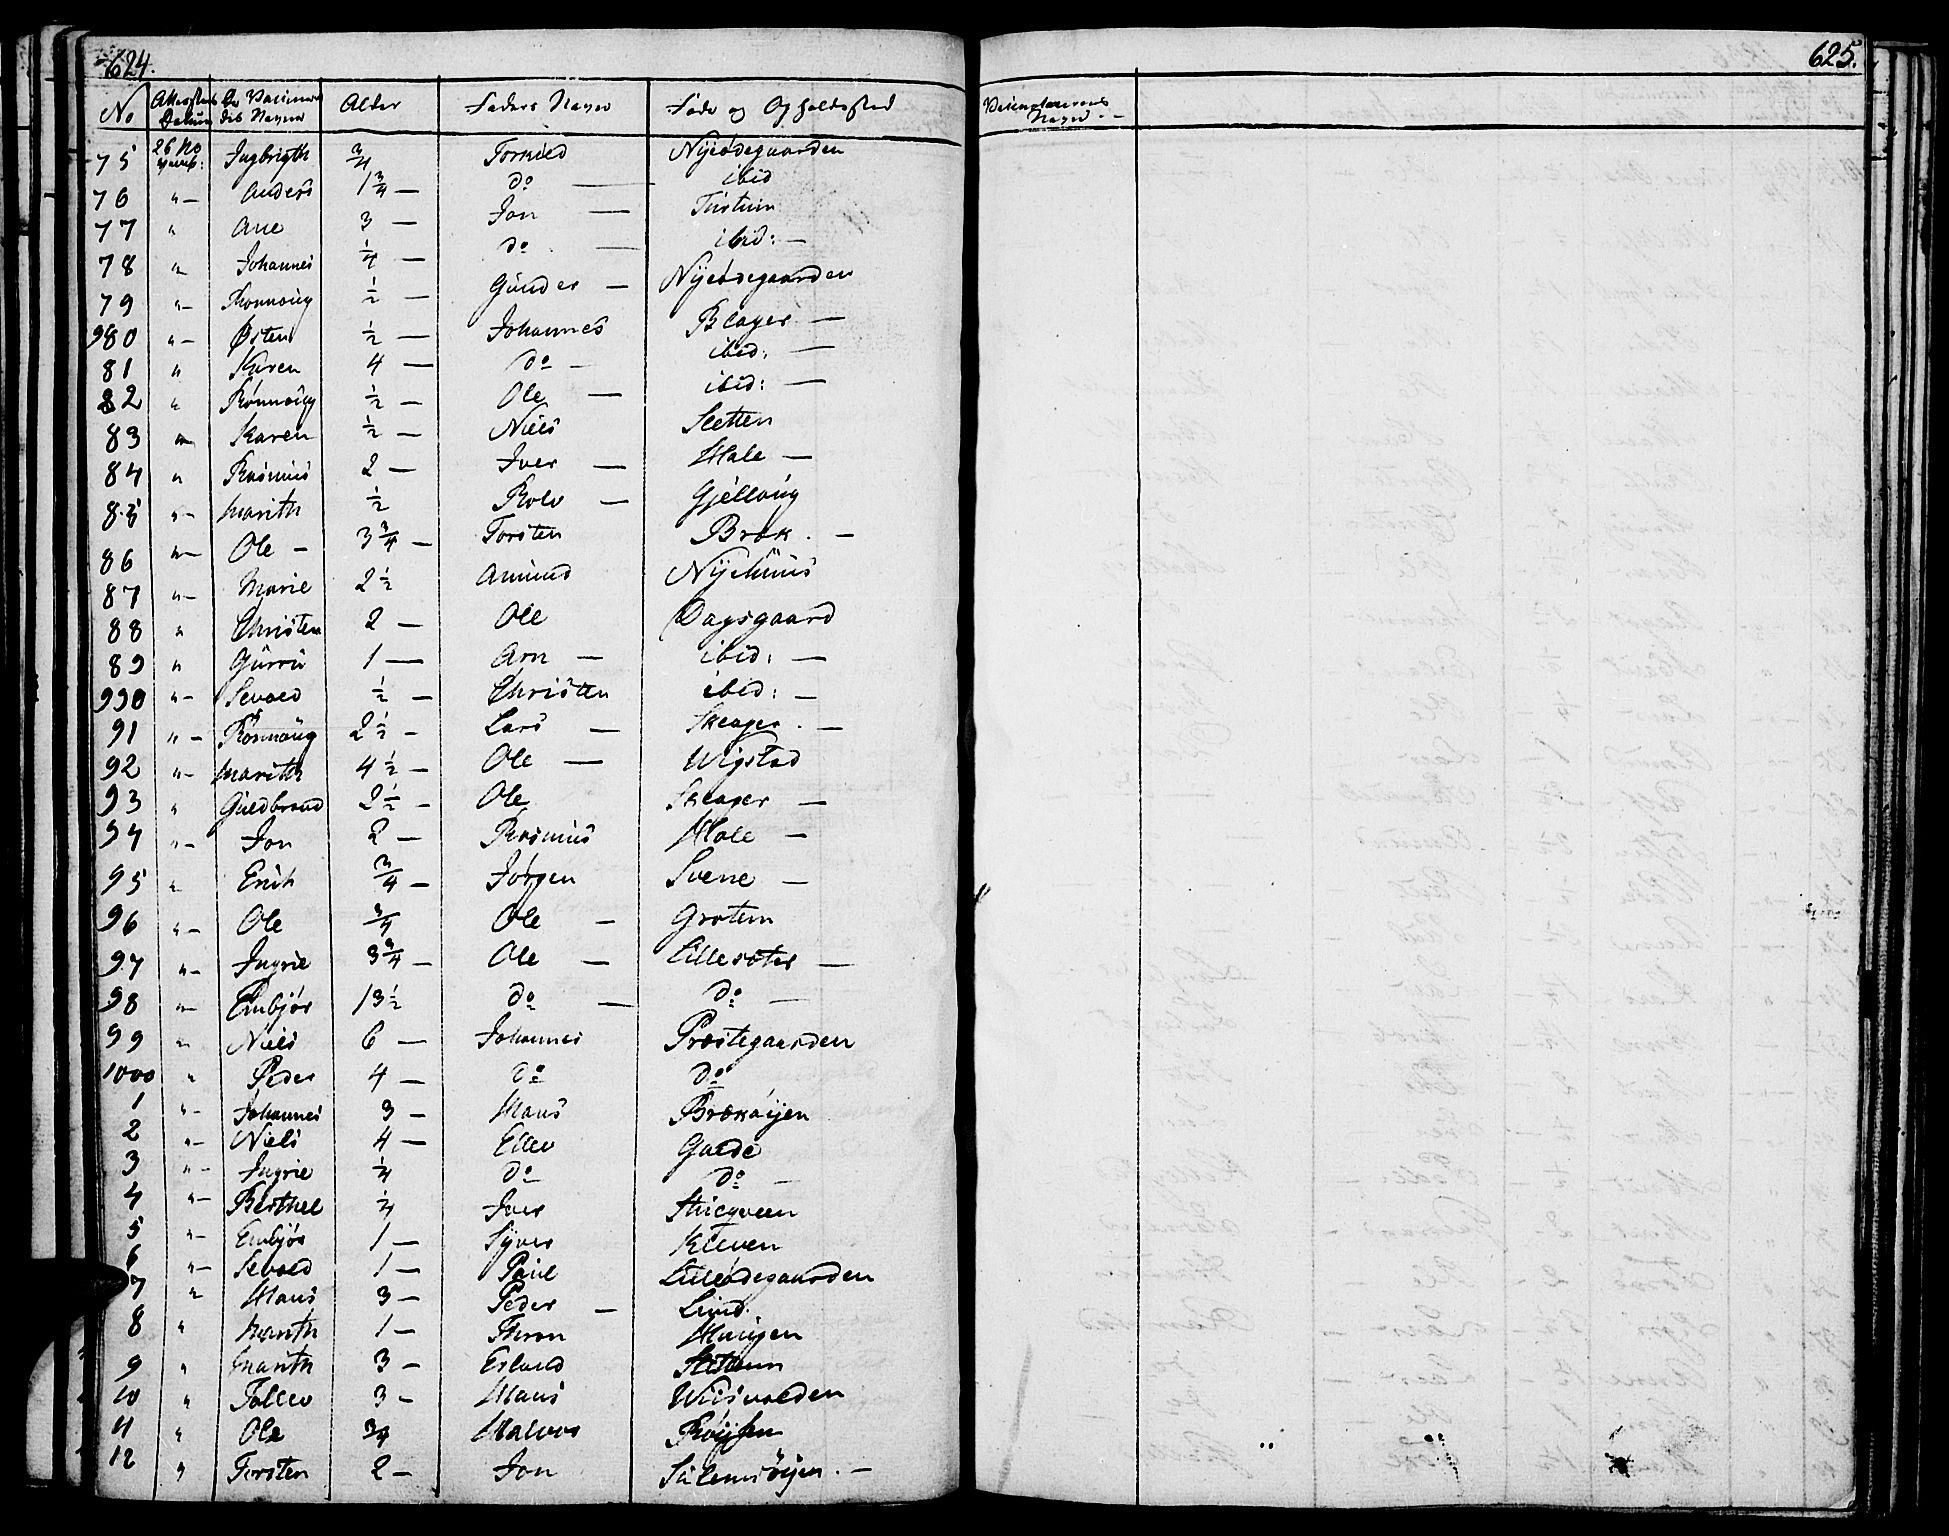 624.
No Attestens Datum De Vaccineredes Navne Alder Faders Navn Føde og Opholdssted
75 26 No vemb: Ingbrigth 3/4 Torkild Nyeødegaarden
76 " – Anders 1 3/4 – do — ibid
77 " Ane 3 – Jon —
78 " Johannes 1/4 – do — ibid: –
79 " – Rønnoug 1/2 – Gunder – Nyeødegaarden
980 " – Østen 1/2 — Johannes Blager –
81 " Karen 4 — do – ibid: —
82 " Rønnoug 1/2 – Ole — ibid: —
83 " – Karen 1/2 – Niels Sletten
84 " Rasmus 2 – Iver — Hole –
85 " – Marith 1/2 Rolv — Gjelloug
86 " – Ole – 3 3/4 – Torsten Bræk. –
87 " – Marie 2 1/2 Amund Nyehuus
88 " Christen 2 – Ole Dagsgaard
89 " Gurru 1 — Arn – ibid: –
990 " – Sevold 1/2 – Christen ibid: –
91 " – Rønnoug 2 1/2 – Lars — Skeager. –
92 " – Marith 4 1/2 – Ole — Wigstad
93 " Guldbrand 2 1/2 – Ole Skeager –
94 " – Jon 2 – Rasmus Hole –
95 " Erich 3/4 – Jørgen Svene –
96 " – Ole 3/4 Ole – Grotem
97 " – Ingrie 3 3/4 – Ole – Lillesæter –
98 " – Embjør 13 1/2 do — do –
99 " – Niels 6 – Johannes Præstegaarden
1000 " Peder 4 – do do
1 " – Johannes 3 – Hans Brækøyen
2 " – Niels 4 – Ellev Galde
3 " – Ingrie 1/4 do do –
4 " – Berthel 1/4 Iver
5 " – Embjør 1 – Syver Kleven
6 " – Sevold 1 – Paul Lilleødegaarden
7 " Hans 3 – Peder – Lund.
8 " Marith 1 –
9 " Marith 3 – Erland
10 " Tollev 3 – Hans
11 " Ole 3/4 Halvor
12 " Torsten 2 – Jon
625.
Vaccinateurens Navn –